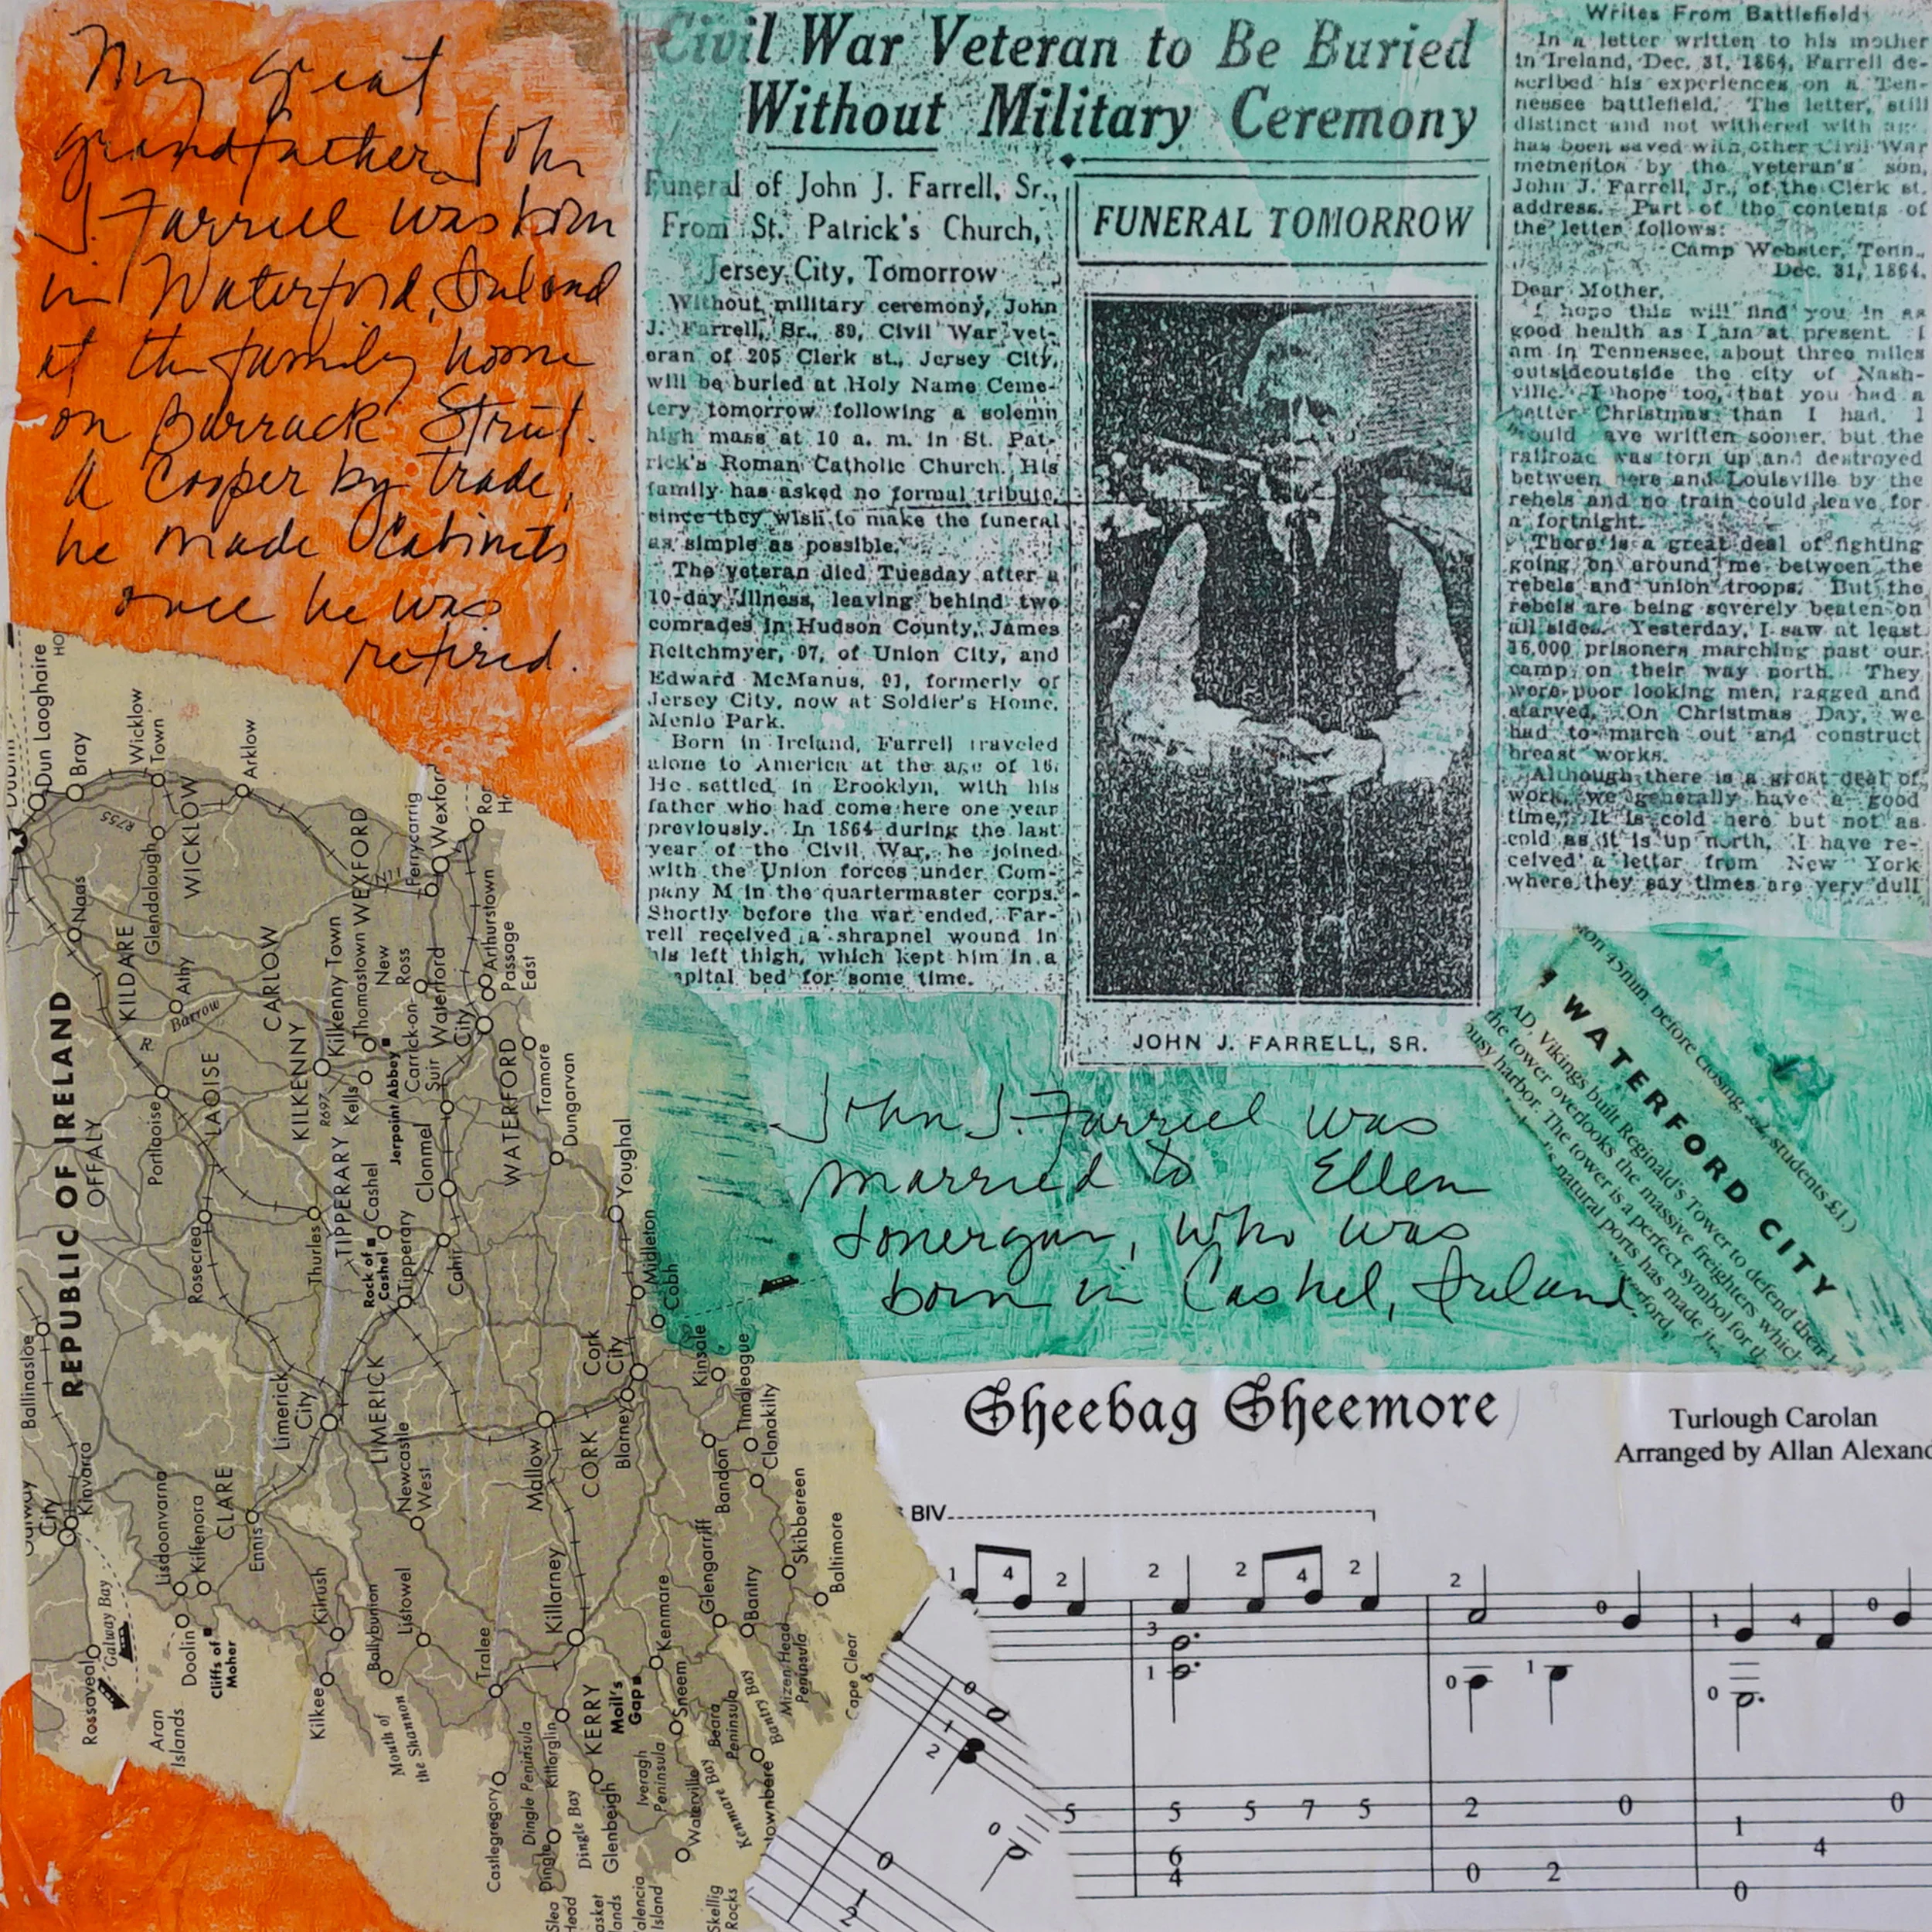 My great
grandfather John
J. Farrell was born
in Waterford, Ireland
at the family home
on Barrack Street.
A Cooper by trade,
he made Cabinets
once he was
retired.
Civil War Veteran to Be Buried
Without Military Ceremony
Funeral of John J. Farrell, Sr.,
From St. Patrick's Church,
Jersey City, Tomorrow
Without military ceremony, John
J. Farrell, Sr., 89, Civil War vet-
eran of 205 Clerk st., Jersey City,
will be buried at Holy Name Ceme-
tery tomorrow following a solemn
high mass at 10 a. m. in St. Pat-
rick's Roman Catholic Church. His
family has asked no formal tribute,
since they wish to make the funeral
as simple as possible.
The veteran died Tuesday after a
10-day illness, leaving behind two
comrades in Hudson County, James
Reitchmyer, 97, of Union City, and
Edward McManus, 91, formerly of
Jersey City, now at Soldier's Home,
Menlo Park.
Born in Ireland, Farrell traveled
alone to America at the age of 16.
He settled in Brooklyn, with his
father who had come here one year
previously. In 1864 during the last
year of the Civil War, he joined
with the Union forces under Com-
pany M in the quartermaster corps.
Shortly before the war ended, Far-
rell received a shrapnel wound in
his left thigh, which kept him in a
spital bed for some time.
FUNERAL TOMORROW
JOHN J. FARRELL, SR.
Writes From Battlefield
In a letter written to his mother
in Ireland, Dec. 31, 1864, Farrell de-
scribed his experiences on a Ten-
nessee battlefield. The letter, still
distinct and not withered with age
has been saved with other Civil War
mementos by the veteran's son,
John J. Farrell, Jr., of the Clerk st.
address. Part of the contents of
the letter follows:
Camp Webster, Tenn.,
Dec. 31, 1864.
Dear Mother,
I hope this will find you in as
good health as I am at present. I
am in Tennessee, about three miles
outsideoutside the city of Nash-
ville. I hope too, that you had a
better Christmas than I had. I
would ave written sooner, but the
railroad was torn up and destroyed
between here and Louisville by the
rebels and no train could leave for
a fortnight.
There is a great deal of fighting
going on around me between the
rebels and union troops. But the
rebels are being severely beaten on
all sides. Yesterday, I saw at least
16,000 prisoners marching past our
camp on their way north. They
were poor looking men, ragged and
starved. On Christmas Day, we
had to march out and construct
breast works.
Although there is a great deal of
work, we generally have a good
time. It is cold here but not as
cold as it is up north. I have re-
ceived a letter from New York
where they say times are very dull
John J. Farrell was
married to Ellen
Lonergan, who was
born in Cashel, Ireland.
45min. before closing, students £1.)
WATERFORD CITY
AD, Vikings built Reginald's Tower to defend their
the tower overlooks the massive freighters which
busy harbor. The tower is a perfect symbol for th
natural ports has made it
REPUBLIC OF IRELAND
Dublin
Dun Laoghaire
Bray
Wicklow Town
Arklow
R755
Glendalough
WICKLOW
Naas
KILDARE
Athy
Barrow
R
CARLOW
WEXFORD
N11
Ferrycarrig
Wexford
Arthurstown
Passage East
New Ross
Waterford City
Thomastown
Kilkenny Town
KILKENNY
R697
Kells
Jerpoint Abbey
Carrick-on Suir
WATERFORD
Tramore
Dungarvan
LAOISE
Portlaoise
OFFALY
Roscrea
Thurles
TIPPERARY
Cashel
Rock of Cashel
Clonmel
Tipperary
Cahir
Youghal
Midleton
Cobh
Ballinasloe
Galway City
Kinvarra
Limerick City
LIMERICK
Newcastle West
Mallow
CORK
Cork City
Blarney
Kinsale
Timoleague
Clonakilty
Bandon
Skibbereen
Baltimore
Lisdoonvarna
Kilfenora
CLARE
Ennis
Kilrush
Ballybunion
Listowel
Killarney
Kenmare
Glengarriff
Bantry
Mizen Head Peninsula
Cape Clear
Rossaveal
Galway Bay
Aran Islands
Doolin
Cliffs of Moher
Kilkee
Mouth of the Shannon
Tralee
KERRY
Moll's Gap
Sneem
Beara Peninsula
Bantry Bay
Castlegregory
Dingle Peninsula
Killorglin
Dingle
Dingle Bay
Glenbeigh
Iveragh Peninsula
Waterville
Kenmare Bay
townbere
Slea Head
asket lands
alencia Island
Skellig Rocks
Sheebag Sheemore
Turlough Carolan
Arranged by Allan Alexand
BIV
1 4 2 2 2 4 2 2 0 1 4 0
3
1 0 1 0
0
1
2
0
5 5 5 7 5 2 0 0
6 1
4 0 2 4
0
0
1
2